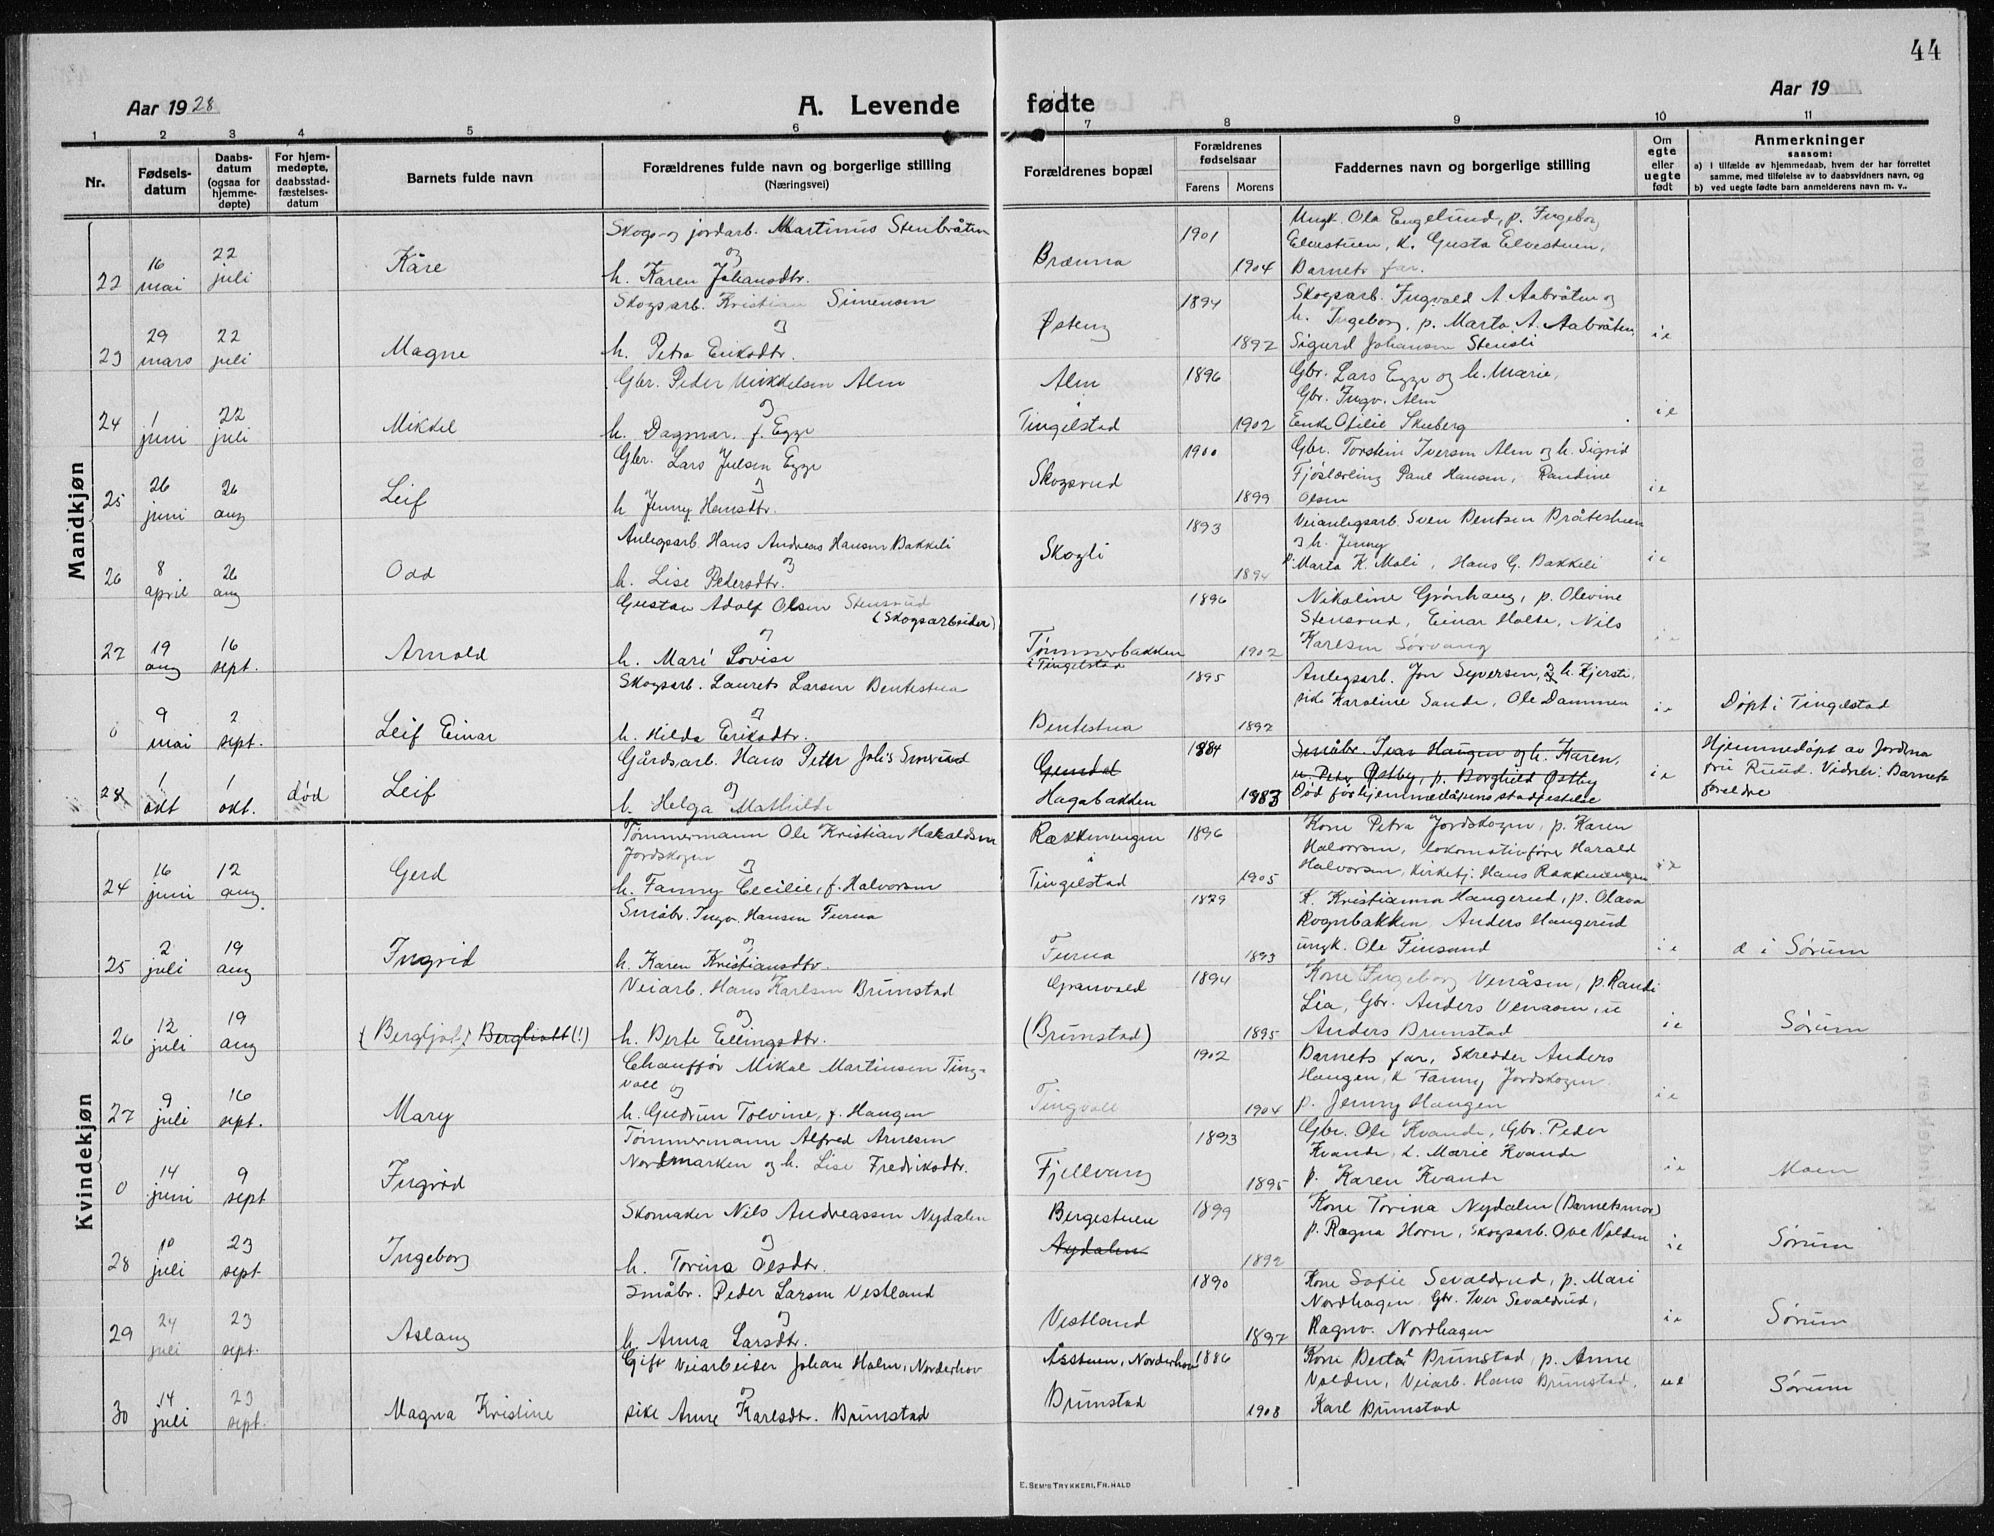 44
Aar 1928
A. Levende fødte
Aar 19
1 2 3 4 5 6 7 8 9 10 11
Nr.
Fødsels-
datum
Daabs-
datum
(ogsaa for
hjemme-
døpte)
For hjem-
medøpte,
daabsstad-
fæstelses-
datum
Barnets fulde navn
Forældrenes fulde navn og borgerlige stilling
(Næringsvei)
Forældrenes bopæl
Forældrenes
fødselsaar
Farens Morens
Faddernes navn og borgerlige stilling
Om
egte
eller
uegte
født
Anmerkninger
saasom:
a) I tilfælde av hjemmedaab, hvem der har forrettet
samme, med tilføielse av to daabsvidners navn, og
b) ved uegte fødte barn anmelderens navn m. v..
Mandkjøn
Skogs- og jordarb. Martinus Stenbråten 1901 Ungk. Ola Engelund, p. Ingeborg
22 16 mai 22 juli Kåre og Brænna Elvestuen, k. Gusta Elvestuen,
h. Karen Johansdtr. 1904 Barnets far.
Skogsarb. Kristian Simensen 1894 Skogsarb. Ingvald A Aabråten og
23 29 mars 22 juli Magne og Østeng h. Ingeborg, p. Marta A. Aabråten,
h. Petra Eriksdtr. 1892 Sigurd Johansen Stensli i e
Gbr. Peder Mikkelsen Alm Alm 1896 Gbr. Lars Egge og h. Marie,
24 1 juni 22 juli Mikkel og i Gbr. Ingv. Alm
h. Dagmar. f. Egge Tingelstad 1902 Enke Otilie Skuberg i e
Gbr. Lars Julsen Egge 1900 Gbr. Torstein Iversen Alm og h. Sigrid
25 26 juni 26 aug Leif og Skogsrud Fjøslærling Paul Hansen, Randine
h Jenny Hansdtr. 1899 Olsen i e
Anlegsarb. Hans Andreas Hansen Bakkeli 1893 Veianlegsarb. Sven Bentsen Bråtestuen
26 8 april 26 aug Odd og Skogli og h. Jenny
h. Lise Pedersdtr. 1894 p. Marta K. Moli, Hans G. Bakkeli i e
Gustav Adolf Olsen Stensrud 1896 Nikoline Grønhaug, p. Olevine
(Skogsarbeider) Stensrud, Einar Holte, Nils
27 19 aug 16 sept. Arnold og Tømmerbakken 1902 Karlsen Sørvang i e
h. Mari Lovise i Tingelstad
Skogsarb. Laurets Larsen Bentestua 1895 Anlegsarb. Jon Syversen, og h. Kjersti,
0 9 mai 2 sept. Leif Einar og Bentestua pike Karoline Sande, Ole Dammen i e Døpt i Tingelstad
h. Hilda Eriksdtr. 1897
Gårdsarb. Hans Peter Johs Smerud 1884 Småbr. Ivar Haugen og h. Karen, Hjemmedøpt av Jordmor
28 1 okt 1 okt. død Leif og u. Peter Østby, p. Borghild Østby i e fru Ruud. Vidner: Barnets
h. Helga Mathilde Hagabakken 1883 Død før hjemmedåpens stadfestelse foreldre
Kvindekjøn
Tømmermann Ole Kristian Haraldsen Rækkenengen 1896 Kone Petra Jordskogen, p. Karen
Jordskogen i Halvorsen, lokomotivfører Harald
24 16 juni 12 aug. Gerd og Tingelstad 1905 Halvorsen, kirketj. Hans Rækkenengen i e
h. Fanny Cecilie, f. Halvorsen
Småbr. Ingv. Hansen Furua 1879 K. Kristianna Haugerud, p. Olava
25 2 juli 19 aug Ingrid og Furua Rognbakken, Anders Haugerud
h. Karen Kristiansdtr. 1893 ungk. Ole Finsand i e d i Sørum
Veiarb. Hans Karlsen Brunstad Granvold 1894 Kone Ingeborg Venåsen, p. Randi
26 12 juli 19 aug (Bergljot) Bergliott (!) og (Brunstad) Lia, Gbr. Anders Venåsen, u
h. Berte Ellingsdtr. 1895 Anders Brunstad i e Sørum
Chauffør Mikal Martinsen Ting- 1902 Barnets far, Skredder Anders
vall og Haugen, k Fanny Jordskogen
27 9 juli 16 sept. Mary h. Gudrun Tolvine, f. Haugen Tingvall 1904 p. Jenny Haugen i e
Tømmermann Alfred Arnesen 1893 Gbr. Ole Kvande, Gbr. Peder
0 14 juni 9 sept Ingrid Nordmarken og h. Lise Fredriksdtr. Fjellvang Kvande, k. Marie Kvande
1895 p. Karen Kvande i e Moen
Skomaker Nils Andreassen Nydalen Bergestuen 1899 Kone Torina Nydalen (Barnets mor)
28 10 juli 23 sept Ingeborg og Nydalen p. Ragna Horn, Skogsarb. Ove Valden
h. Torina Olsdtr. 1892 i e Sørum
Småbr. Peder Larsen Vestland 1890 Kone Sofie Sevaldrud, p. Mari
29 24 juli 23 sept. Aslaug og Vestland Nordhagen, Gbr. Iver Sevaldrud,
h. Anna Larsdtr. 1897 Ragnv. Nordhagen i e Sørum
Gift Veiarbeider Johan Holm, Norderhov Åsstuen, Norderhov 1886 Kone Berte Brunstad, p. Anne
30 14 juli 23 sept. Magna Kristine og Brunstad Valden, Veiarb. Hans Brunstad,
pike Anne Karlsdtr. Brunstad 1908 Karl Brunstad u e Sørum
E. SEM'S TRYKKERI, FR.HALD